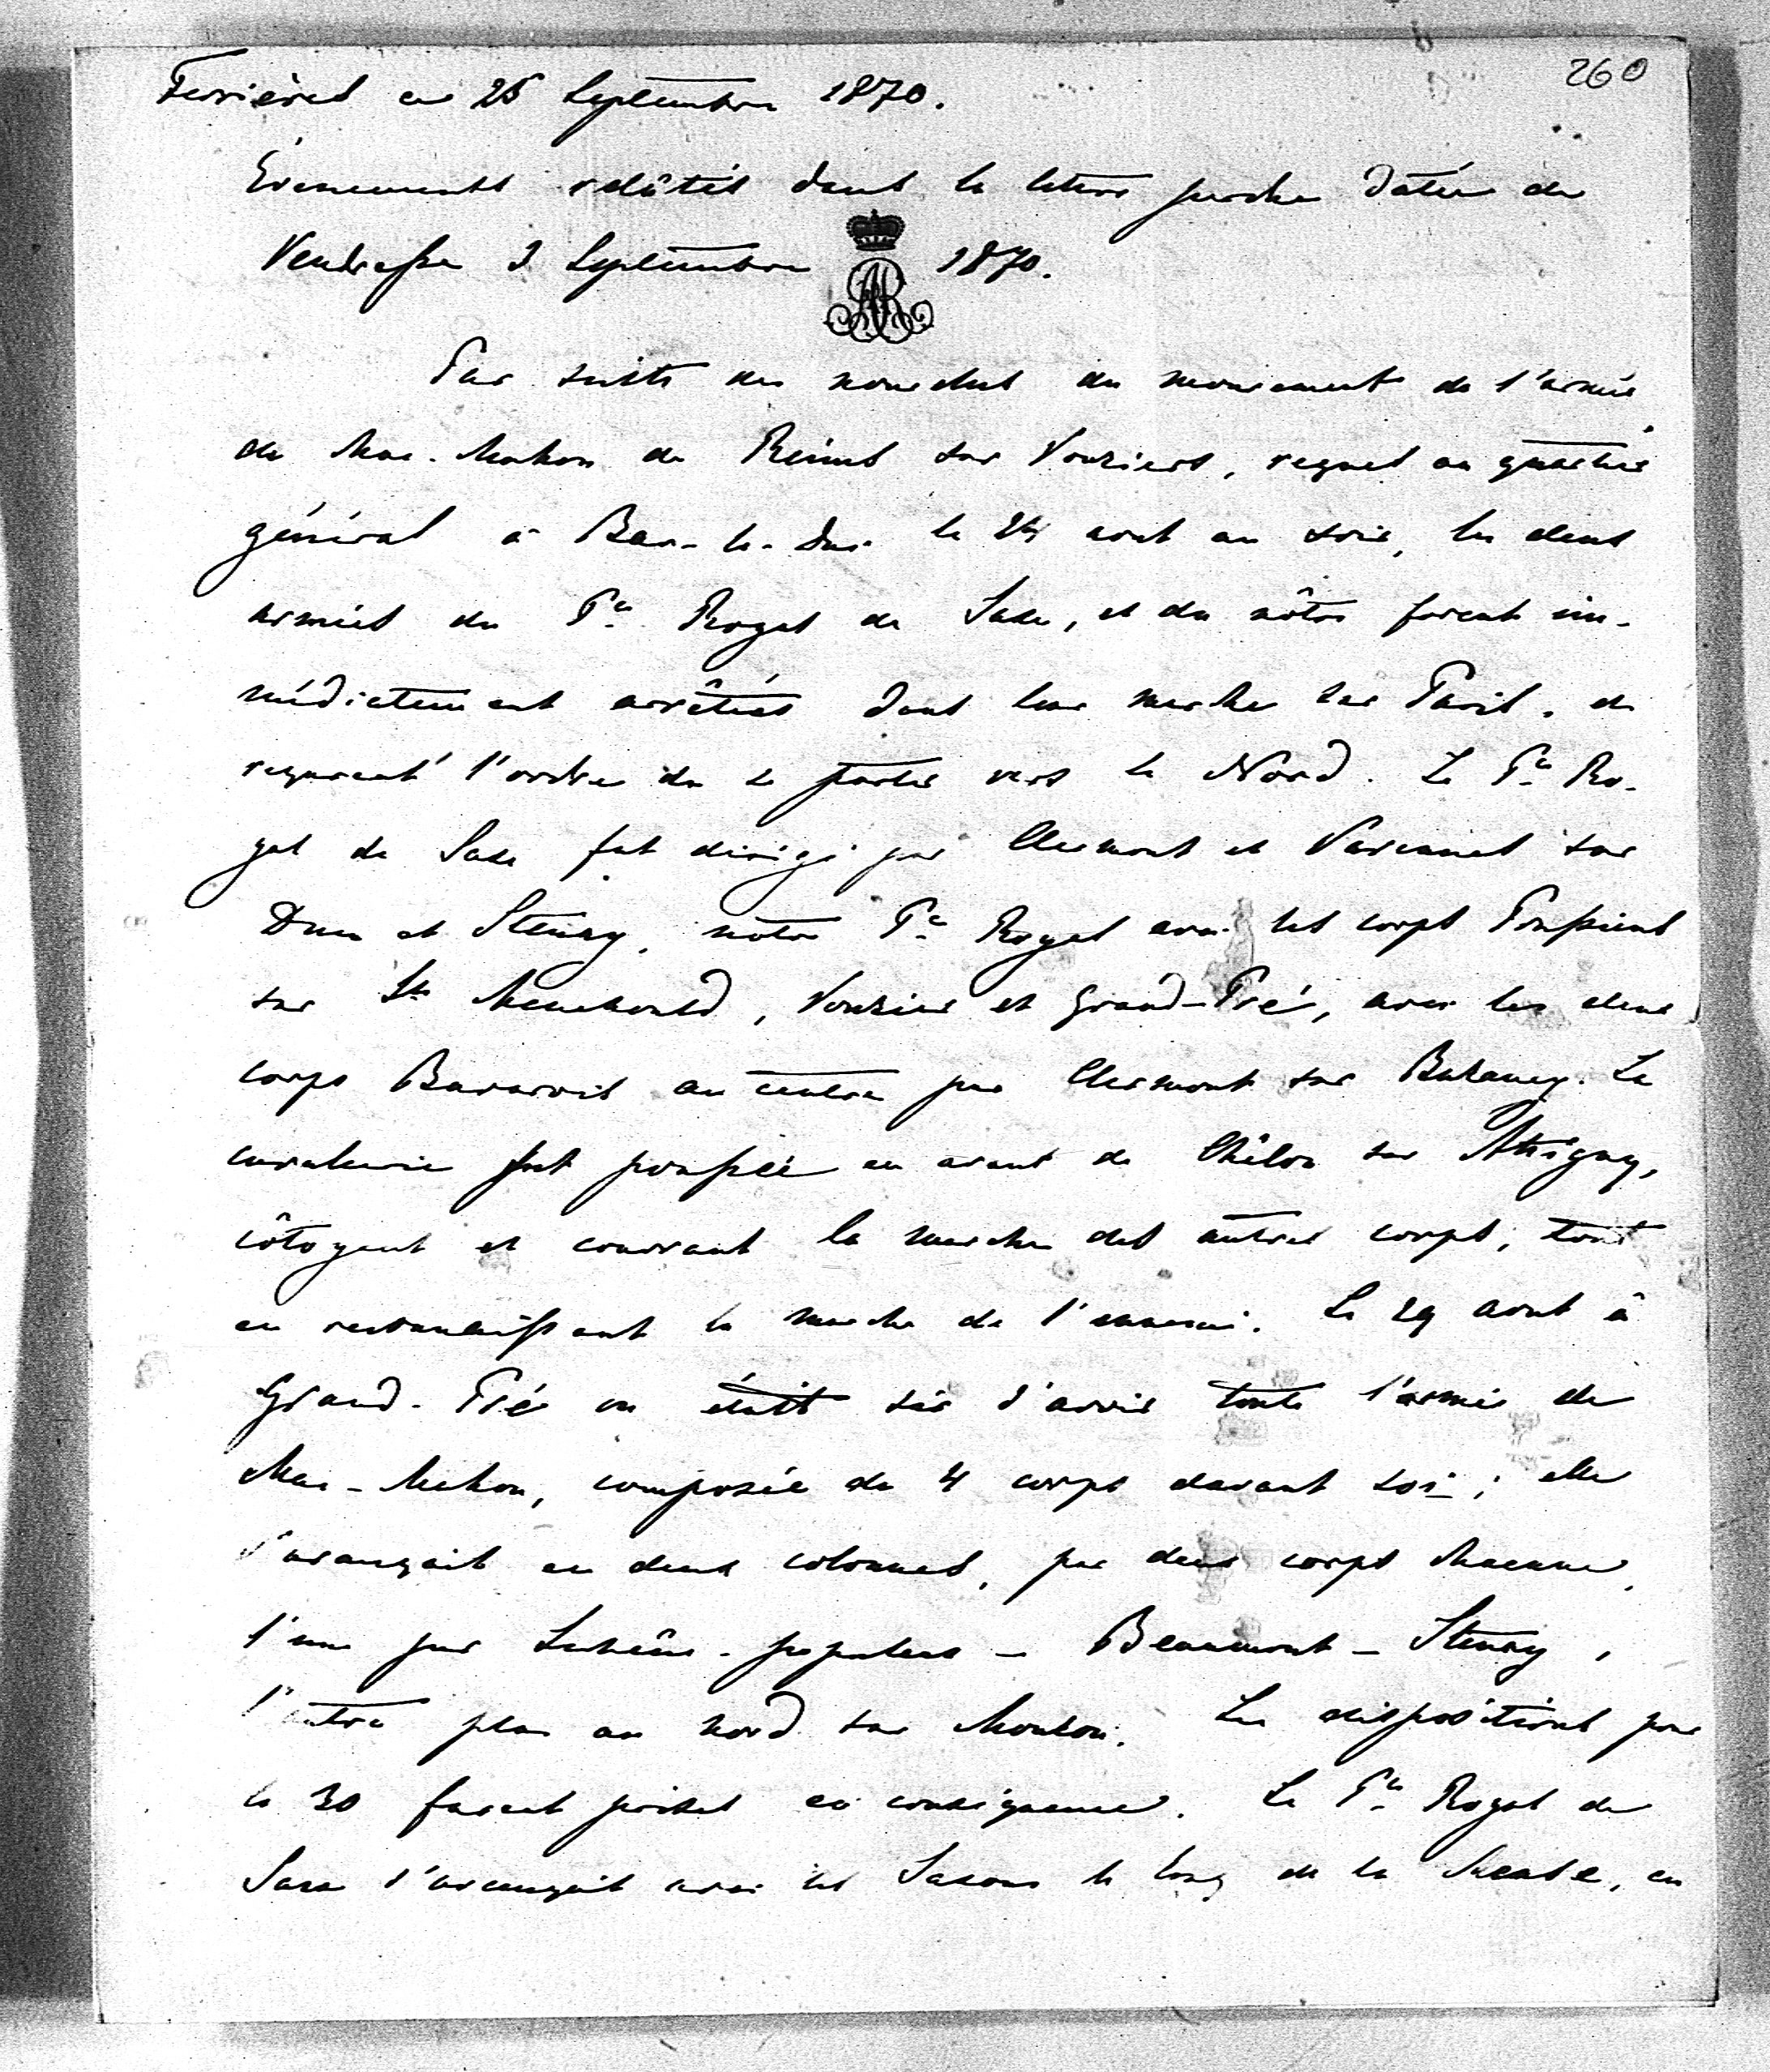 260
Ferrières ce 25 Septembre 1870.
Evènements relâtés dans la lettre perdue datée de
Vendresse 3 Septembre 1870.
AR
Par suite des nouvelles du mouvement de l'armée
de Mac-Mahon de Reims sur Vouziers, reçues au quartier
général à Bar-le-Duc le 24 aout au soir, les deux
armées du Pce Royal de Saxe, et du nôtre furent im-
médiatement arrêtées dans leur marche sur Paris, et
reçurent l'ordre de se porter vers le Nord. Le Pce Ro-
yal de Saxe fut dirigé par Clermont et Varennes sur
Dun et Stenay, notre Pce Royal avec les corps Prussiens
sur Ste Menehould, Vouziers et Grand-Pré, avec les deux
corps Bavarois au centre par Clermont sur Buzancy. La
cavalerie fut poussée en avant de Châlon sur Attigny,
côtoyant et couvrant la marche des autres corps, tout
en reconnaissant la marche de l'ennemi. Le 29 aout à
Grand-Pré on était sûr d'avoir toute l'armée de
Mac-Mahon, composée de 4 corps devant soi; elle
s'avançait en deux colonnes, par deux corps chacune,
l'une par - Beaumont - Stenay,
l'autre plus au nord sur Mouzon. Les dispositions pour
le 30 furent prises en conséquence. Le Pce Royal de
Saxe s'avançait avec les Saxons le long de la Meuse, en